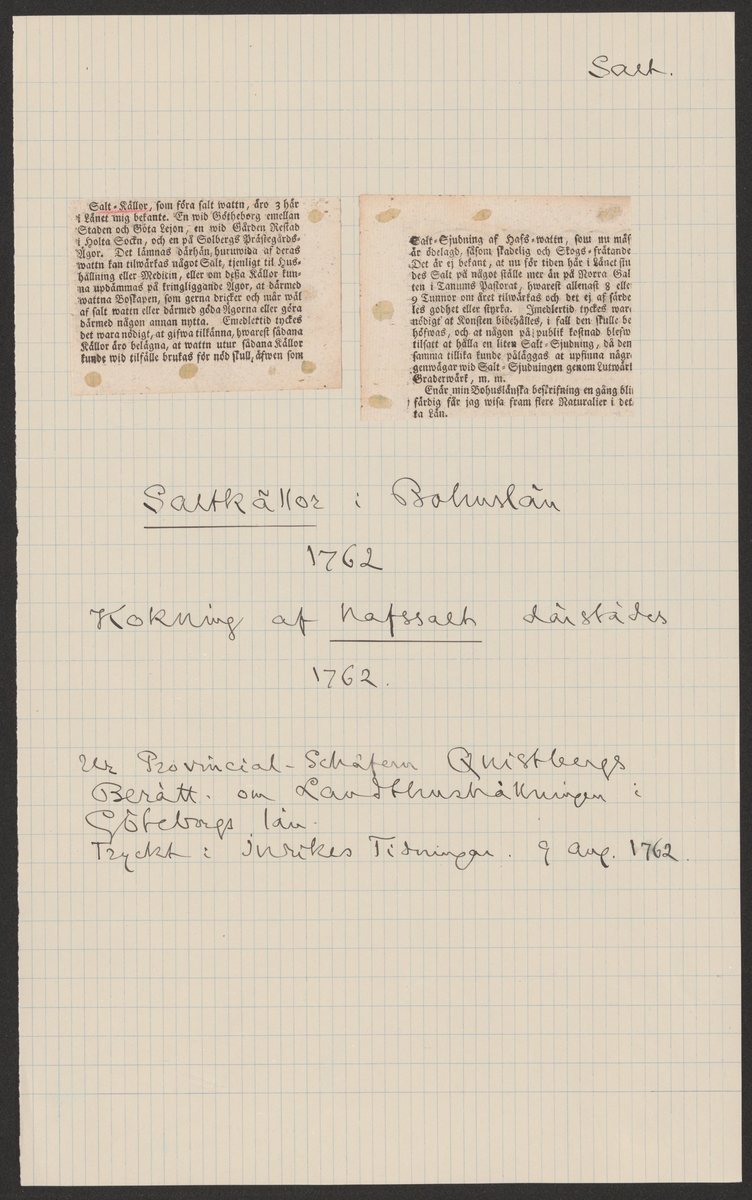 Salt.
Salt-Källor, som föra salt wattn, äro 3 här
i Länet mig bekante. En wid Götheborg emellan
Staden och Göta Lejon, en wid Gården Restad
i Holta Sockn, och en på Solbergs Prästegårds-
Ägor. Det lämnas därhän, huruwida af deras
wattn kan tilwärkas något Salt, tjenligt til Hus-
hållning eller Medicin, eller om deßa Källor kun-
na updämmas på kringliggande Ägor, at därmed
wattna Boskapen, som gerna dricker och mår wäl
af salt wattn eller därmed göda Ägorna eller göra
därmed någon annan nytta. Emedlertid tyckes
det wara nödigt, at gifwa tilkänna, hwarest sådana
Källor äro belägna, at wattn utur sådana Källor
kunde wid tilfälle brukas för nöd skull, äfwen som
Salt-Sjudning af Hafs-wattn, som nu mäst
är ödelagd, såsom skadelig och Skogs-frätande
Det är ej bekant, at nu för tiden här i Länet siu
des Salt på något ställe mer än på Norra Gal
ten i Tanums Pastorat, hwarest allenast 8 elle
9 Tunnor om året tilwärkas och det ej af särde
les godhet eller styrka. Imedlertid tyckes wara
nödigt at Konsten bibehålles, i fall den skulle be
höfwas, och at någon på publik kostnad blefw
tilsatt at hålla en liten Salt-Sjudning, då den
samma tillika kunde påläggas at upfinna någr
genwägar wid Salt-Sjudningen genom Lutwärk
Graderwärk, m. m.
Enär min Bohuslänska beskrifning en gång bli
färdig får jag wisa fram flere Naturalier i det
ta Län.
Saltkällor i Bohuslän
1762
Kokning af hafssalt därstädes
1762.
Ur Provincial-Schäfern Quistbergs
Berätt. om Landthushållningen i
Göteborgs län.
Tryckt i Inrikes Tidningar. 9 Aug. 1762.